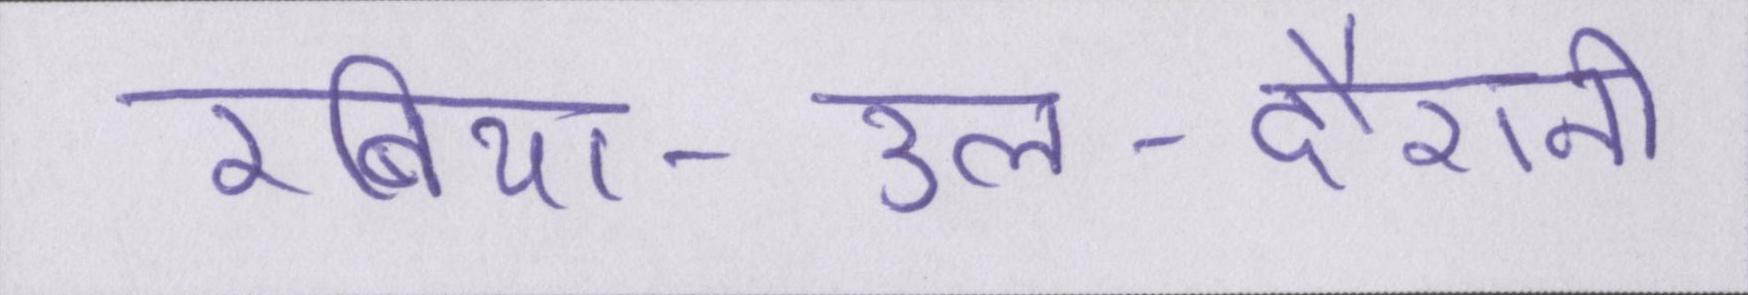 रबिया-उल-दौरानी